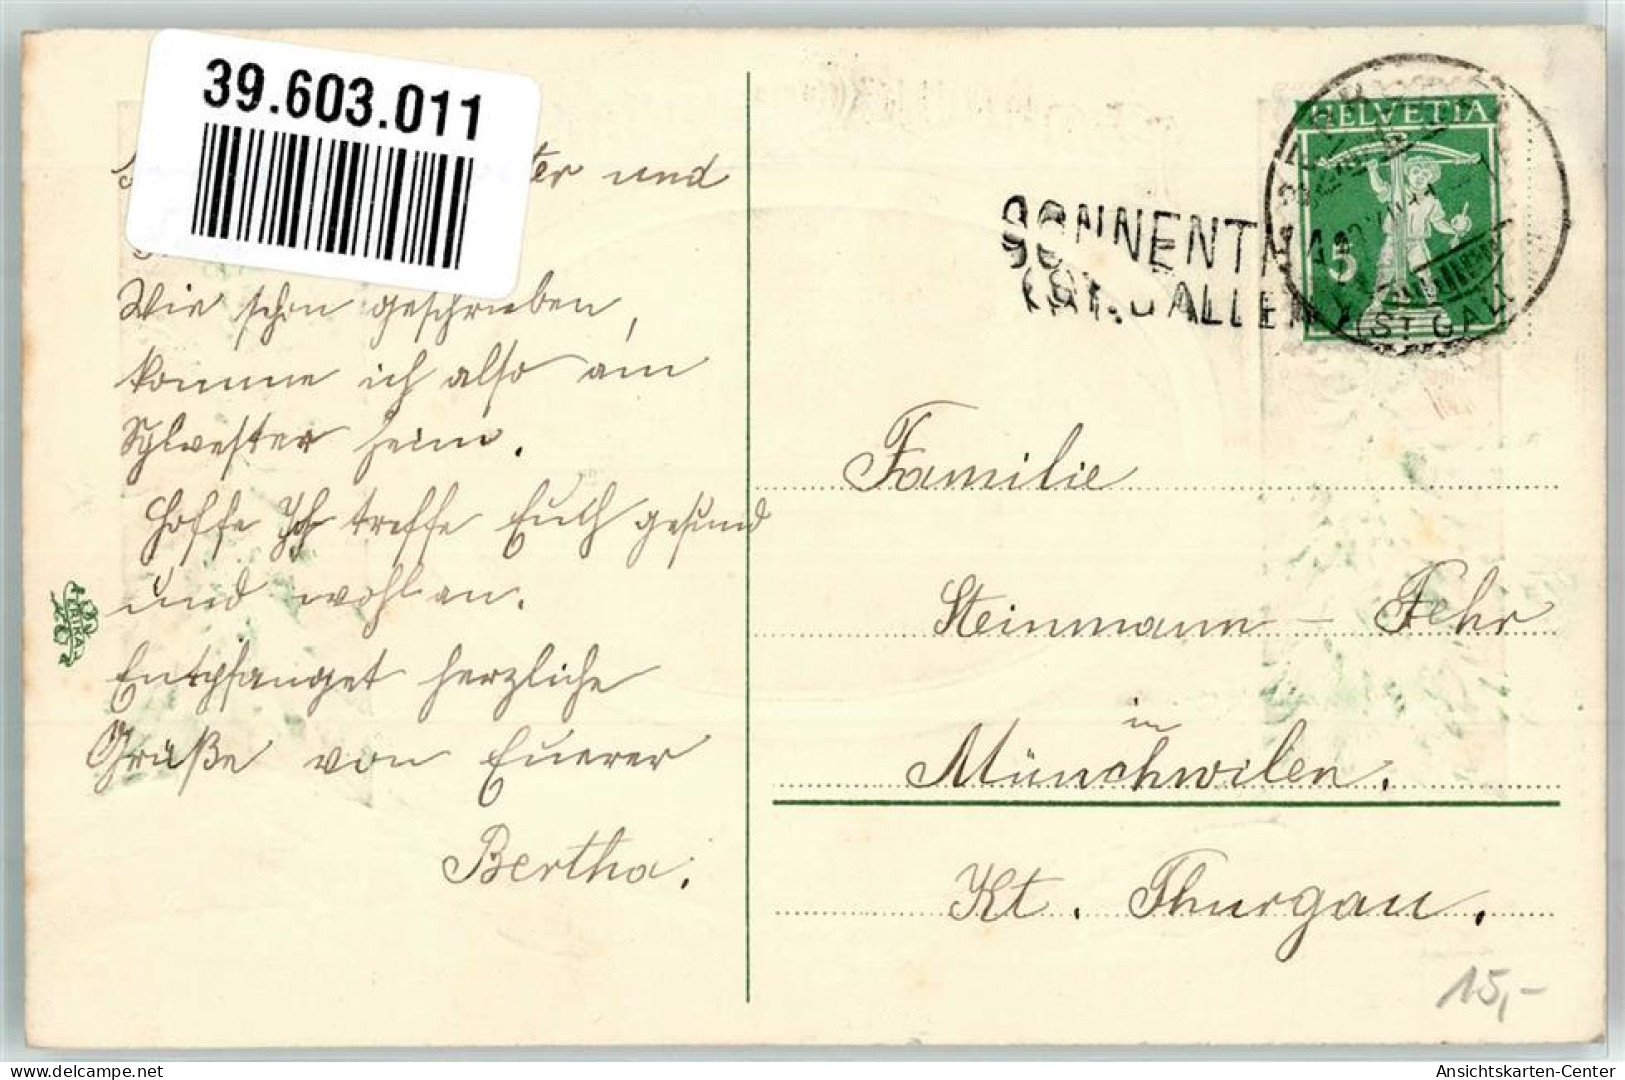 39.603.011
ter und
Wie schon geschrieben,
komme ich also am
Sylvester heim.
Hoffe Ich treffe Euch gesund
und wohl an.
Entpfanget herzliche
Grüße von Euerer
Bertha.
HELVETIA
5
SONNENT
(ST. GALLEN
(ST. GALL
Familie
Steinmann – Fehr
in
Münchwilen.
Kt. Thurgau.
15,-
ERIKA
Ansichtskarten-Center